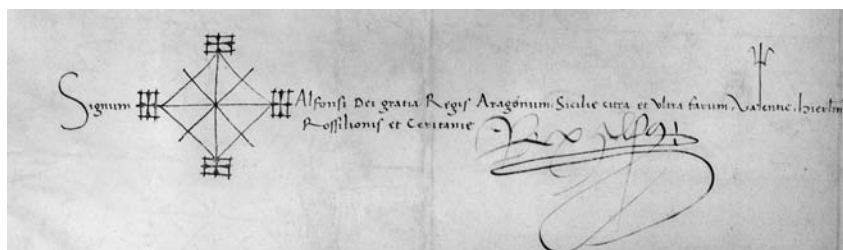 Signum Alfonsi Dei gratia Regis Aragonum. Sicilie citra et Ultra farum. Valentie. hierlm
Rossilionis et Ceritanie
Rex Alfo